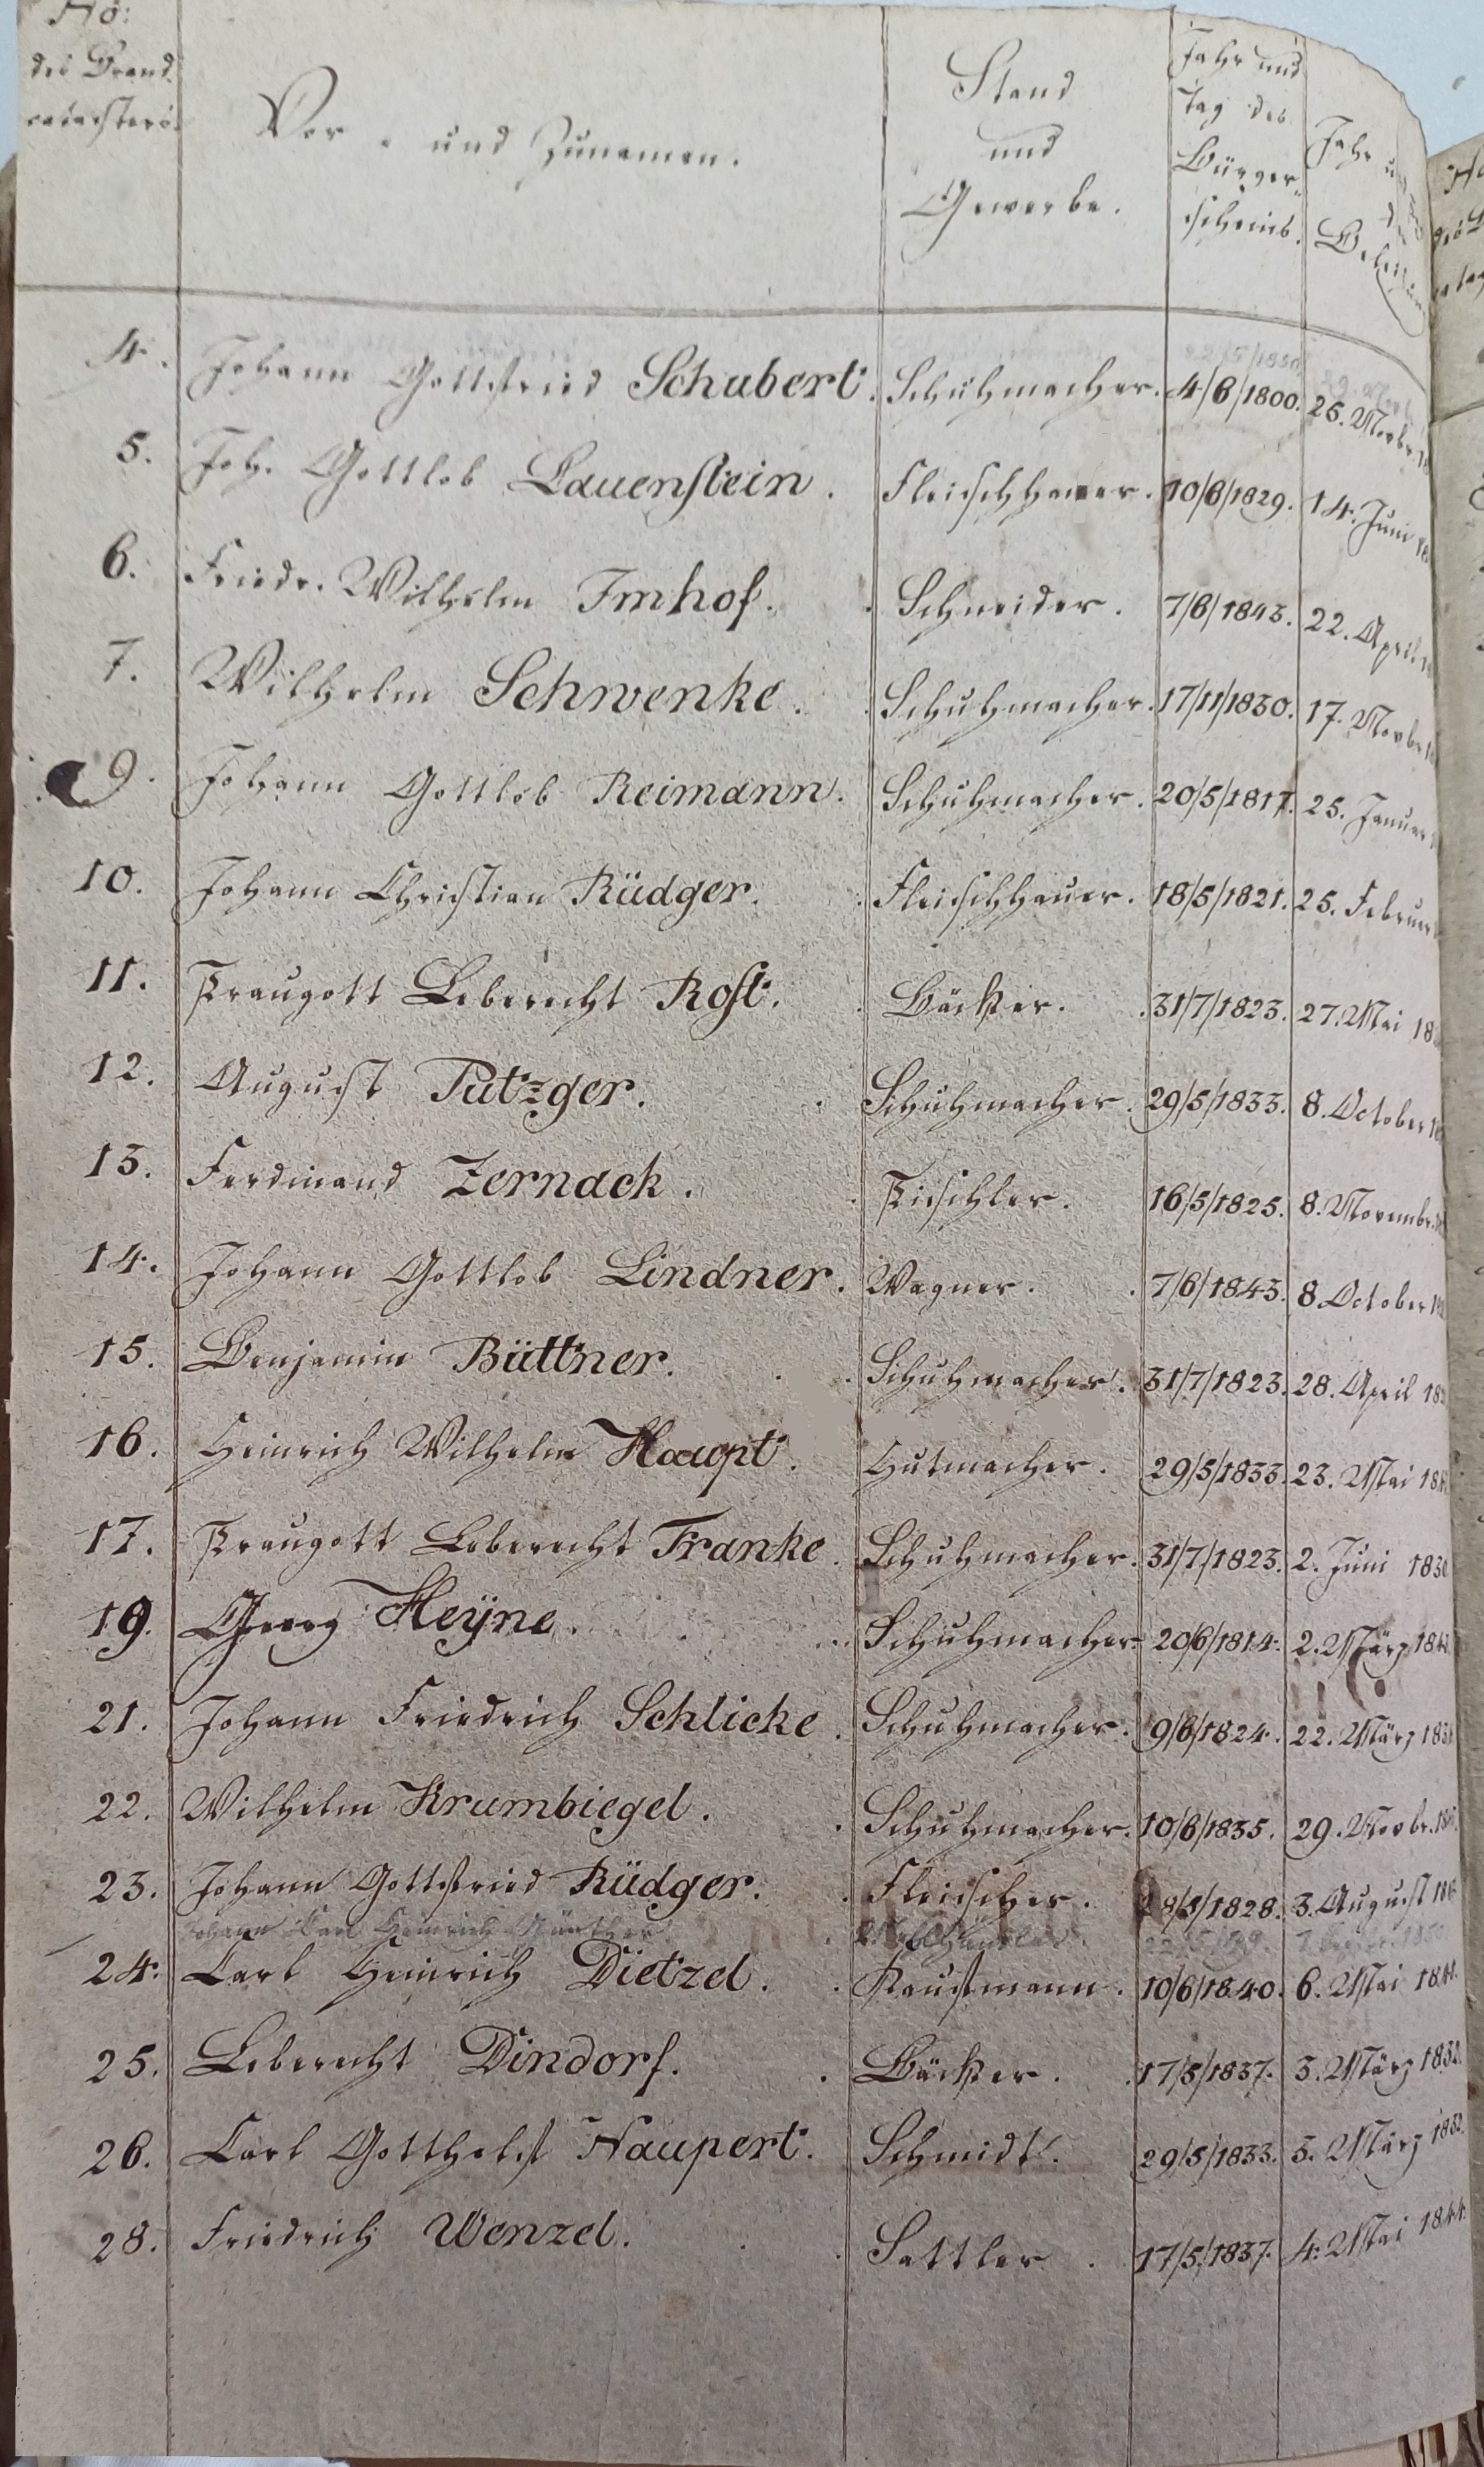 No:
des Brand
catasters
Vor- und Zunamen.
Stand
und
Gewerbe.
Jahr und
Tag des
Bürger-
scheins.
Jahr
4. Johann Gottfried Schubert. Schuhmacher. 4/6/1800. 26. Novbr.
5. Joh. Gottlob Lauenstein. Fleischhauer. 10/6/1829. 14. Juni
6. Friedr. Wilhelm Imhof. Schneider. 7/6/1843. 22. April
7. Wilhelm Schwenke. Schuhmacher. 17/11/1830. 17. Novbr.
9. Johann Gottlob Reimann. Schuhmacher. 20/5/1817. 25. Januar
10. Johann Christian Rüdger. Fleischhauer. 18/5/1821. 25. Februar
11. Traugott Leberecht Rost. Bäcker. 31/7/1823. 27. Mai 18
12. August Putzger. Schuhmacher. 29/5/1833. 8. October
13. Ferdinand Zernack. Tischler. 16/5/1825. 8. Novembr.
14. Johann Gottlob Lindner. Wagner. 7/6/1843. 8. October
15. Benjamin Büttner. Schuhmacher. 31/7/1823. 28. April 18
16. Heinrich Wilhelm Haupt. Hutmacher. 29/5/1833. 23. Mai 18
17. Traugott Leberecht Franke. Schuhmacher. 31/7/1823. 2. Juni 1830
19. Georg Heÿne. Schuhmacher. 20/6/1814. 2. März 184
21. Johann Friedrich Schlicke. Schuhmacher. 9/6/1824. 22. März 183
22. Wilhelm Krumbiegel. Schuhmacher. 10/6/1835. 29. Novbr.
23. Johann Gottfried Rüdger. Fleischer. 28/5/1828. 3. August
Johann Carl Heinrich Günther
24. Carl Heinrich Dietzel. Kaufmann. 10/6/1840. 6. Mai 1841.
25. Leberecht Dindorf. Bäcker. 17/5/1837. 3. März 1832.
26. Carl Gotthelf Naupert. Schmidt. 29/5/1833. 3. März 1832.
28. Friedrich Wenzel. Sattler. 17/5/1837. 4. Mai 1844.